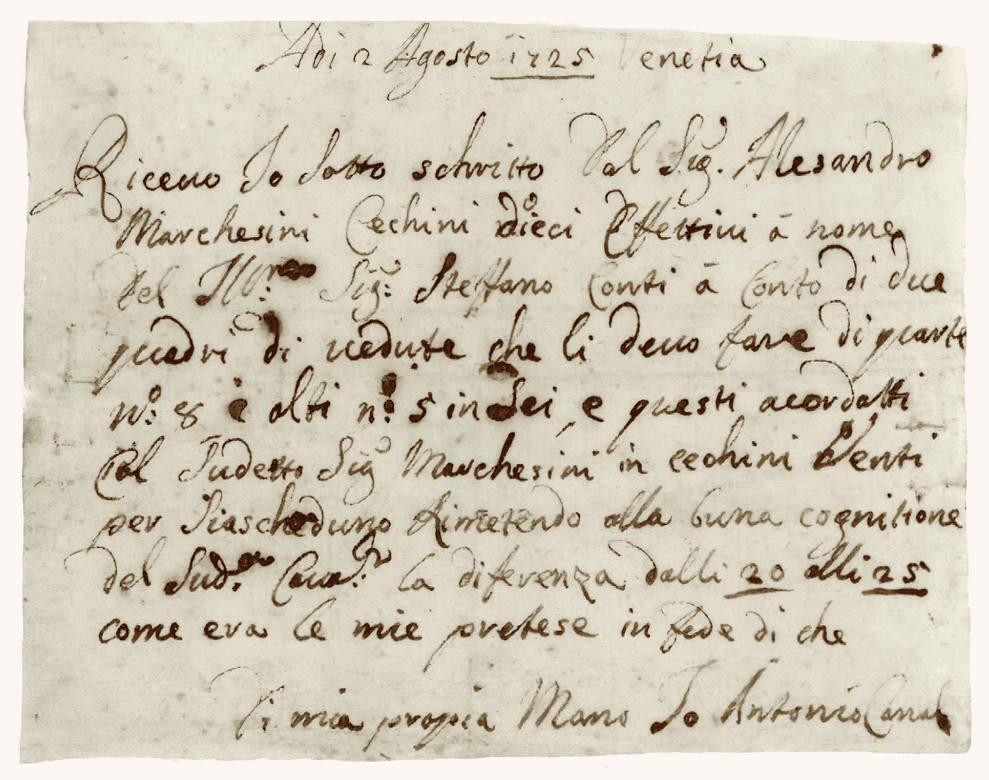 Adi 2 Agosto 1725 Venetia
Riceuo Io sotto schritto dal Sig. Alesandro
Marchesini Cechini dieci Effettiui á nome
del Illmo. Sig: Steffano Conti á Conto di due
quadri di uedute che li deuo fare di quarte
no: 8 e alti no: 5 in Sei, e questi acordatti
Col Sudetto Sig Marchesini in cechini Venti
per Siascheduno Rimetendo alla buna cognitione
del Sud. Caua. la diferenza dalli 20 alli 25
come era le mie pretese in fede di che
Di mia propia Mano Io Antonio Canal